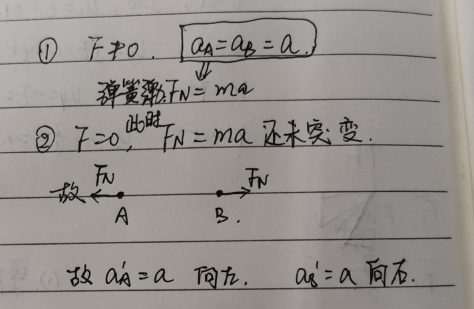 ① F≠0. a_A=a_B=a.
⇓
弹簧弹力F_N=ma
② F=0,此时 F_N=ma 还未突变.
故 F_N F_N
A B.
故 a_A'=a 向左. a_B'=a 向右.